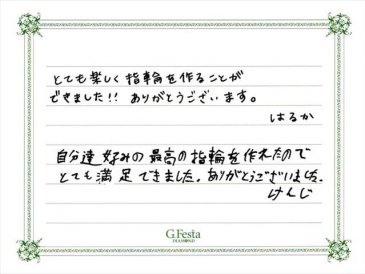 とても楽しく指輪を作ることが
できました!! ありがとうございます。
はるか
自分達好みの最高の指輪を作れたので
とても満足できました。ありがとうございました。
けんじ
G.Festa
DIAMOND